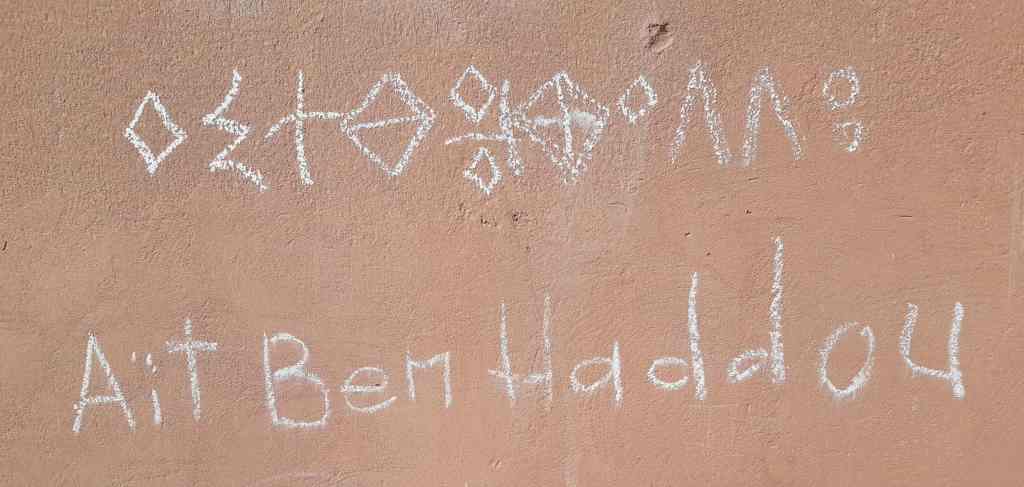 ⴰⵉⵜⴱⴻⵏⵀⴰⴷⴷⵓ
Aït Ben Haddou